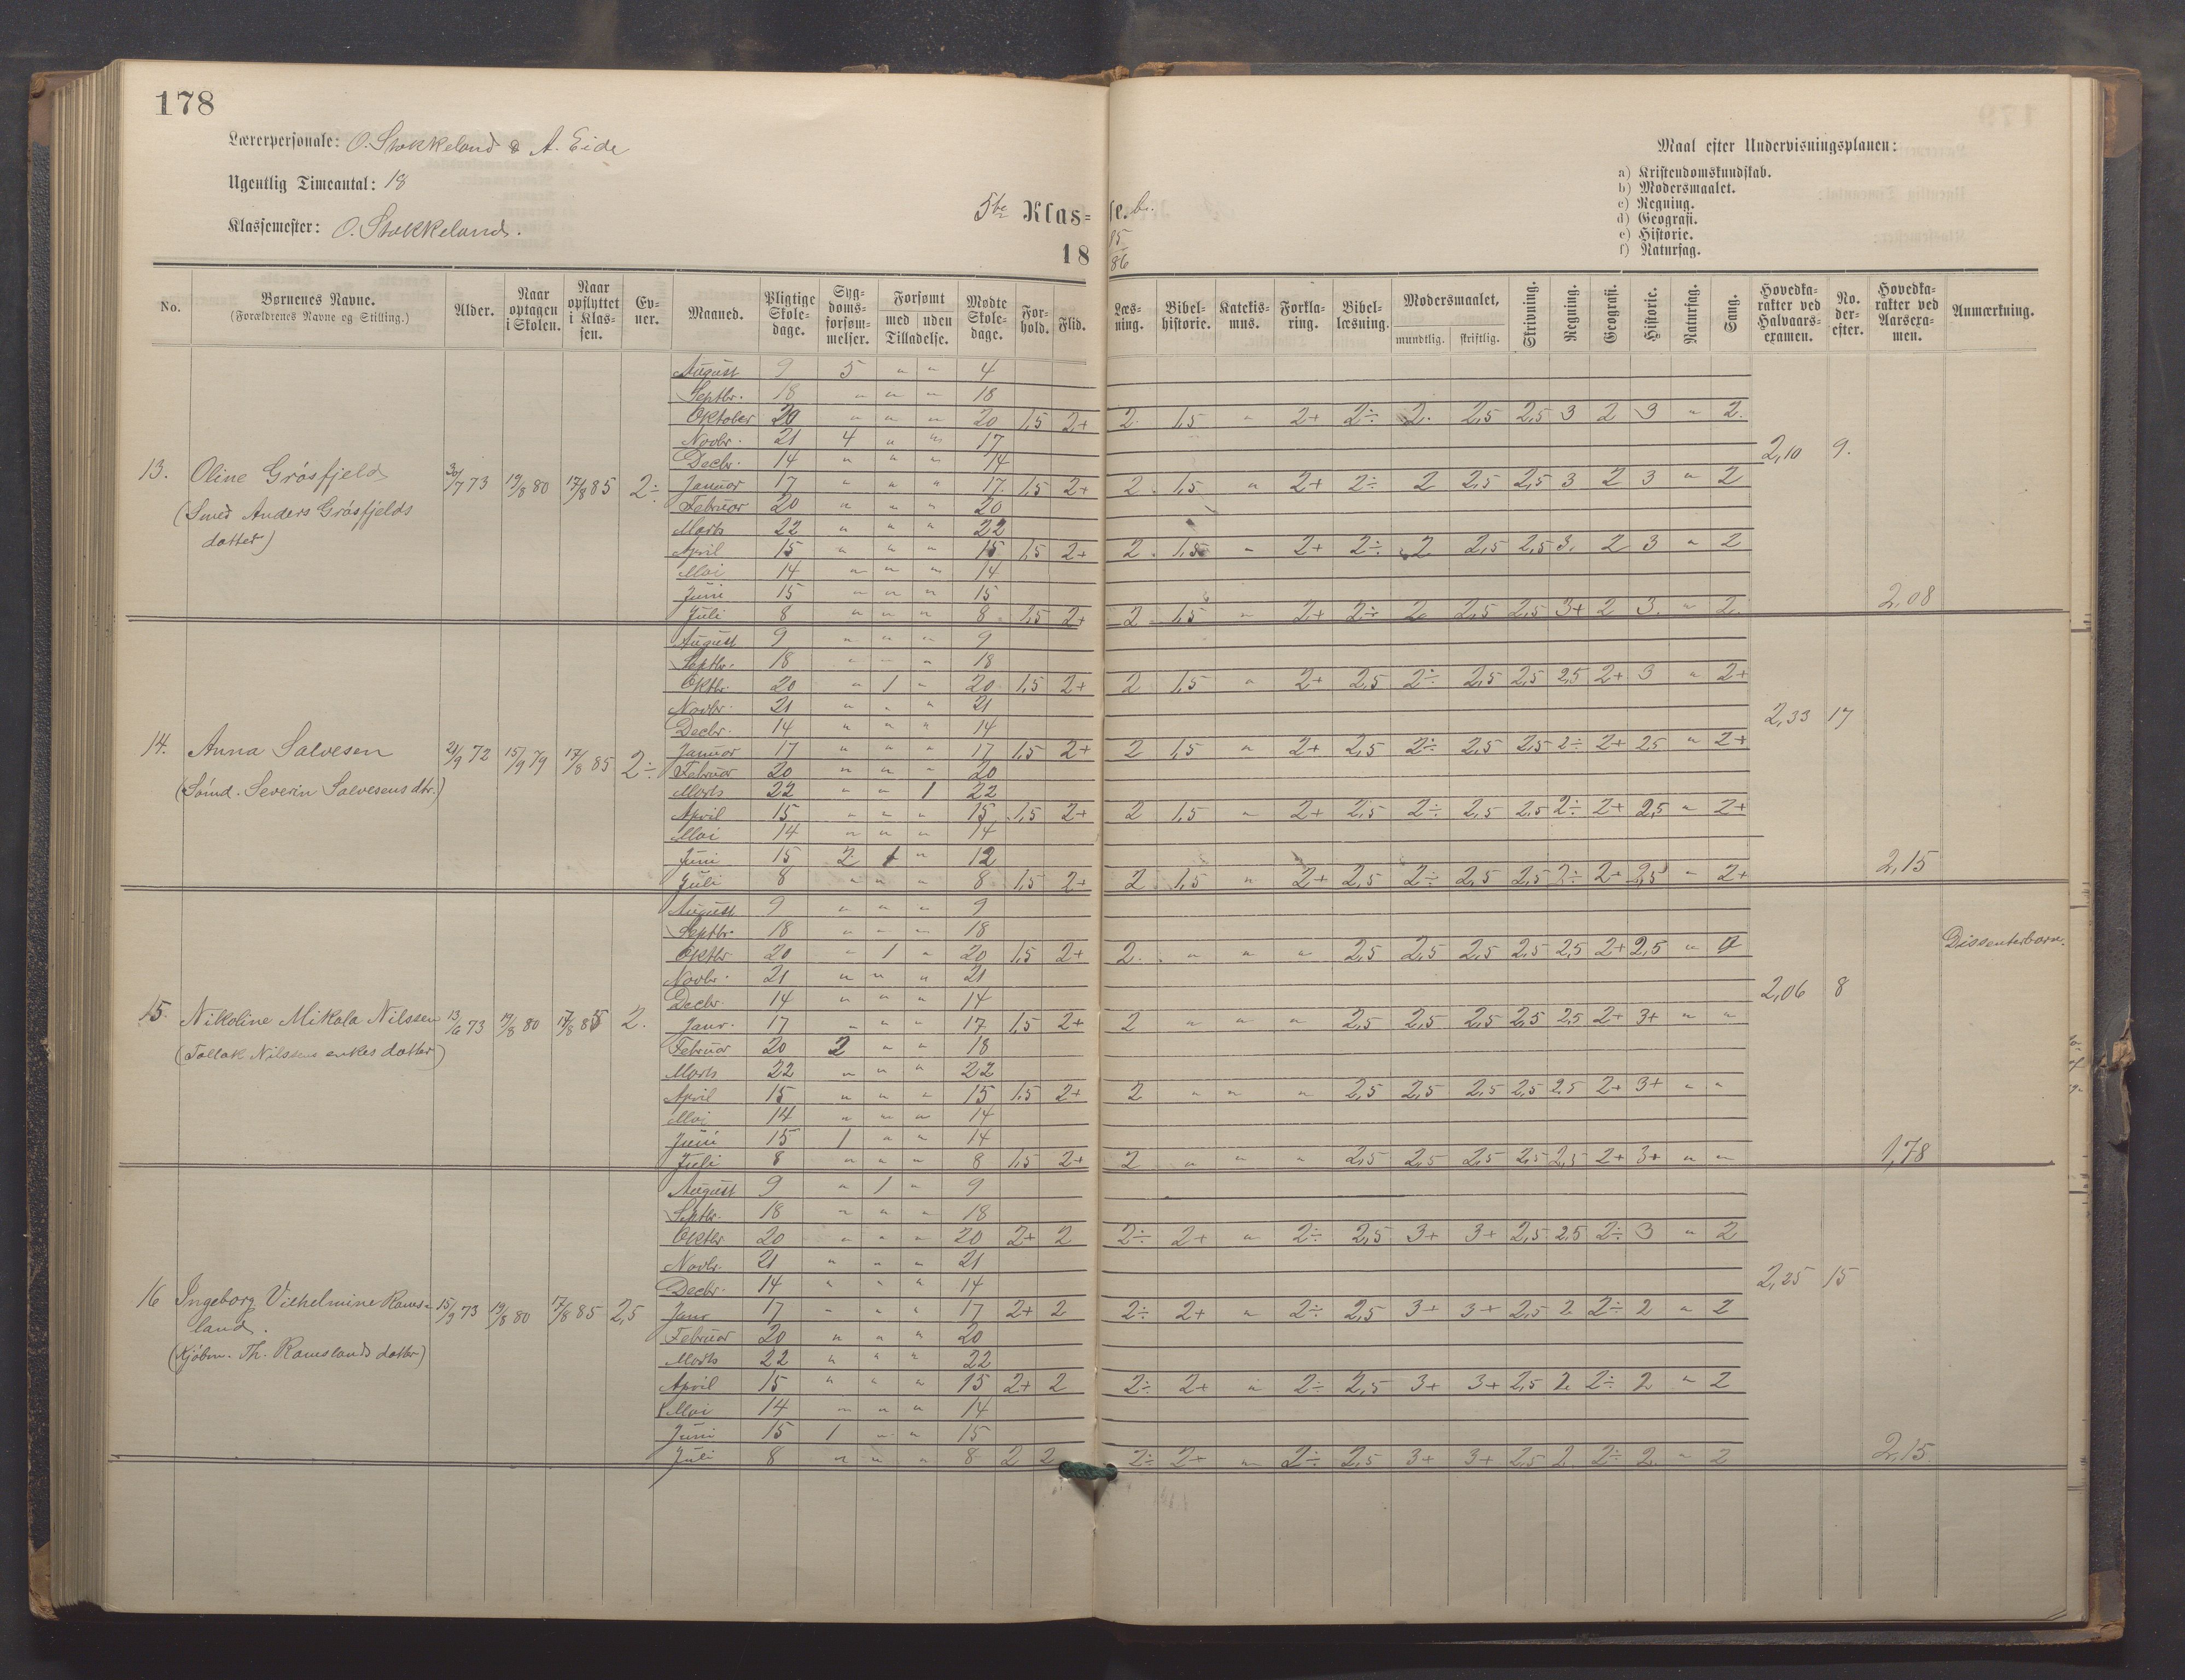 178
Lærerpersonale: O. Stokkeland & A. Eide
Ugentlig Timeantal: 18
Klassemester: O. Stokkeland.
5te Klas= se. b.
18 85/86
Maal efter Undervisningsplanen:
a) Kristendomskundskab.
b) Modersmaalet.
c) Regning.
d) Geografi.
e) Historie.
f) Naturfag.
No. | Børnenes Navne. (Forældrenes Navne og Stilling.) | Alder. | Naar optagen i Skolen. | Naar opflyttet i Klassen. | Evner. | Maaned. | Pligtige Skoledage. | Sygdomsforsømmelser. | Forsømt med uden Tilladelse. | Mødte Skoledage. | Forhold. | Flid. | Læsning. | Bibelhistorie. | Katekismus. | Forklaring. | Bibellæsning. | Modersmaalet, mundtlig. skriftlig. | Skrivning. | Regning. | Geografi. | Historie. | Naturfag. | Sang. | Hovedkarakter ved Halvaarsexamen. | No. derefter. | Hovedkarakter ved Aarsexamen. | Anmærkning.
August 9 5 " " 4
Septbr. 18 " " " 18
Oktober 20 " " " 20 1,5 2+ 2 1,5 " 2+ 2÷ 2 2,5 2,5 3 2 3 " 2
Novbr. 21 4 " " 17
Decbr. 14 " " " 14 2,10 9.
13. Oline Grósfjeld 30/7 73 19/8 80 17/8 85 2÷
Januar 17 " " " 17 1,5 2+ 2 1,5 " 2+ 2÷ 2 2,5 2,5 3 2 3 " 2
(Smed Anders Grósfjelds
datter)
Februar 20 " " " 20
Marts 22 " " " 22
April 15 " " " 15 1,5 2+ 2 1,5 " 2+ 2÷ 2 2,5 2,5 3 2 3 " 2
Mai 14 " " " 14
Juni 15 " " " 15
Juli 8 " " " 8 1,5 2+ 2 1,5 " 2+ 2÷ 2 2,5 2,5 3+ 2 3 " 2 2,08
August 9 " " " 9
Septbr. 18 " " " 18
Oktbr. 20 " 1 " 20 1,5 2+ 2 1,5 " 2+ 2,5 2÷ 2,5 2,5 2,5 2+ 3 " 2+
Novbr. 21 " " " 21
Decbr. 14 " " " 14 2,33 17
14. Anna Salvesen 21/9 72 15/9 79 17/8 85 2÷
Januar 17 " " " 17 1,5 2+ 2 1,5 " 2+ 2,5 2÷ 2,5 2,5 2÷ 2+ 2,5 " 2+
(Sómd. Severin Salvesens dtr.)
Februar 20 " " " 20
Marts 22 " " 1 22
April 15 " " " 15 1,5 2+ 2 1,5 " 2+ 2,5 2÷ 2,5 2,5 2÷ 2+ 2,5 " 2+
Mai 14 " " " 14
Juni 15 2 1 " 12
Juli 8 " " " 8 1,5 2+ 2 1,5 " 2+ 2,5 2÷ 2,5 2,5 2÷ 2+ 2,5 " 2+ 2,15
August 9 " " " 9
Septbr. 18 " " " 18
Oktbr 20 " 1 " 20 1,5 2+ 2 " " " 2,5 2,5 2,5 2,5 2,5 2+ 2,5 " Dissenterbarn.
Novbr. 21 " " " 21
Decbr. 14 " " " 14 2,06 8
15. Nikoline Mikala Nilssen 13/6 73 19/8 80 17/8 85 2.
Janr. 17 " " " 17 1,5 2+ 2 " " " 2,5 2,5 2,5 2,5 2,5 2+ 3+ " "
(Tallak Nilssens enkes datter)
Februar 20 2 " " 18
Marts 22 " " " 22
April 15 " " " 15 1,5 2+ 2 " " " 2,5 2,5 2,5 2,5 2,5 2+ 3+ " "
Mai 14 " " " 14
Juni 15 1 " " 14
Juli 8 " " " 8 1,5 2+ 2 " " " 2,5 2,5 2,5 2,5 2,5 2+ 3+ " " 1,78
August 9 " 1 " 9
Septbr. 18 " " " 18
Oktbr 20 " " " 20 2+ 2 2÷ 2+ " 2÷ 2,5 3+ 3+ 2,5 2,5 2÷ 3 " 2
Novbr. 21 " " " 21
Decbr. 14 " " " 14 2,25 15
16 Ingeborg Vilhelmine Rams=
land. 15/9 73 19/8 80 17/8 85 2,5
Janr 17 " " " 17 2+ 2 2÷ 2+ " 2÷ 2,5 3+ 3+ 2,5 2 2÷ 2 " 2
(Kjøbm. Th. Ramslands datter)
Februar 20 " " " 20
Marts 22 " " " 22
April 15 " " " 15 2+ 2 2÷ 2+ " 2÷ 2,5 3+ 3+ 2,5 2 2÷ 2 " 2
Mai 14 " " " 14
Juni 15 1 " " 15
Juli 8 " " " 8 2 2 2÷ 2+ " 2÷ 2,5 3+ 3+ 2,5 2 2÷ 2 " 2 2,15